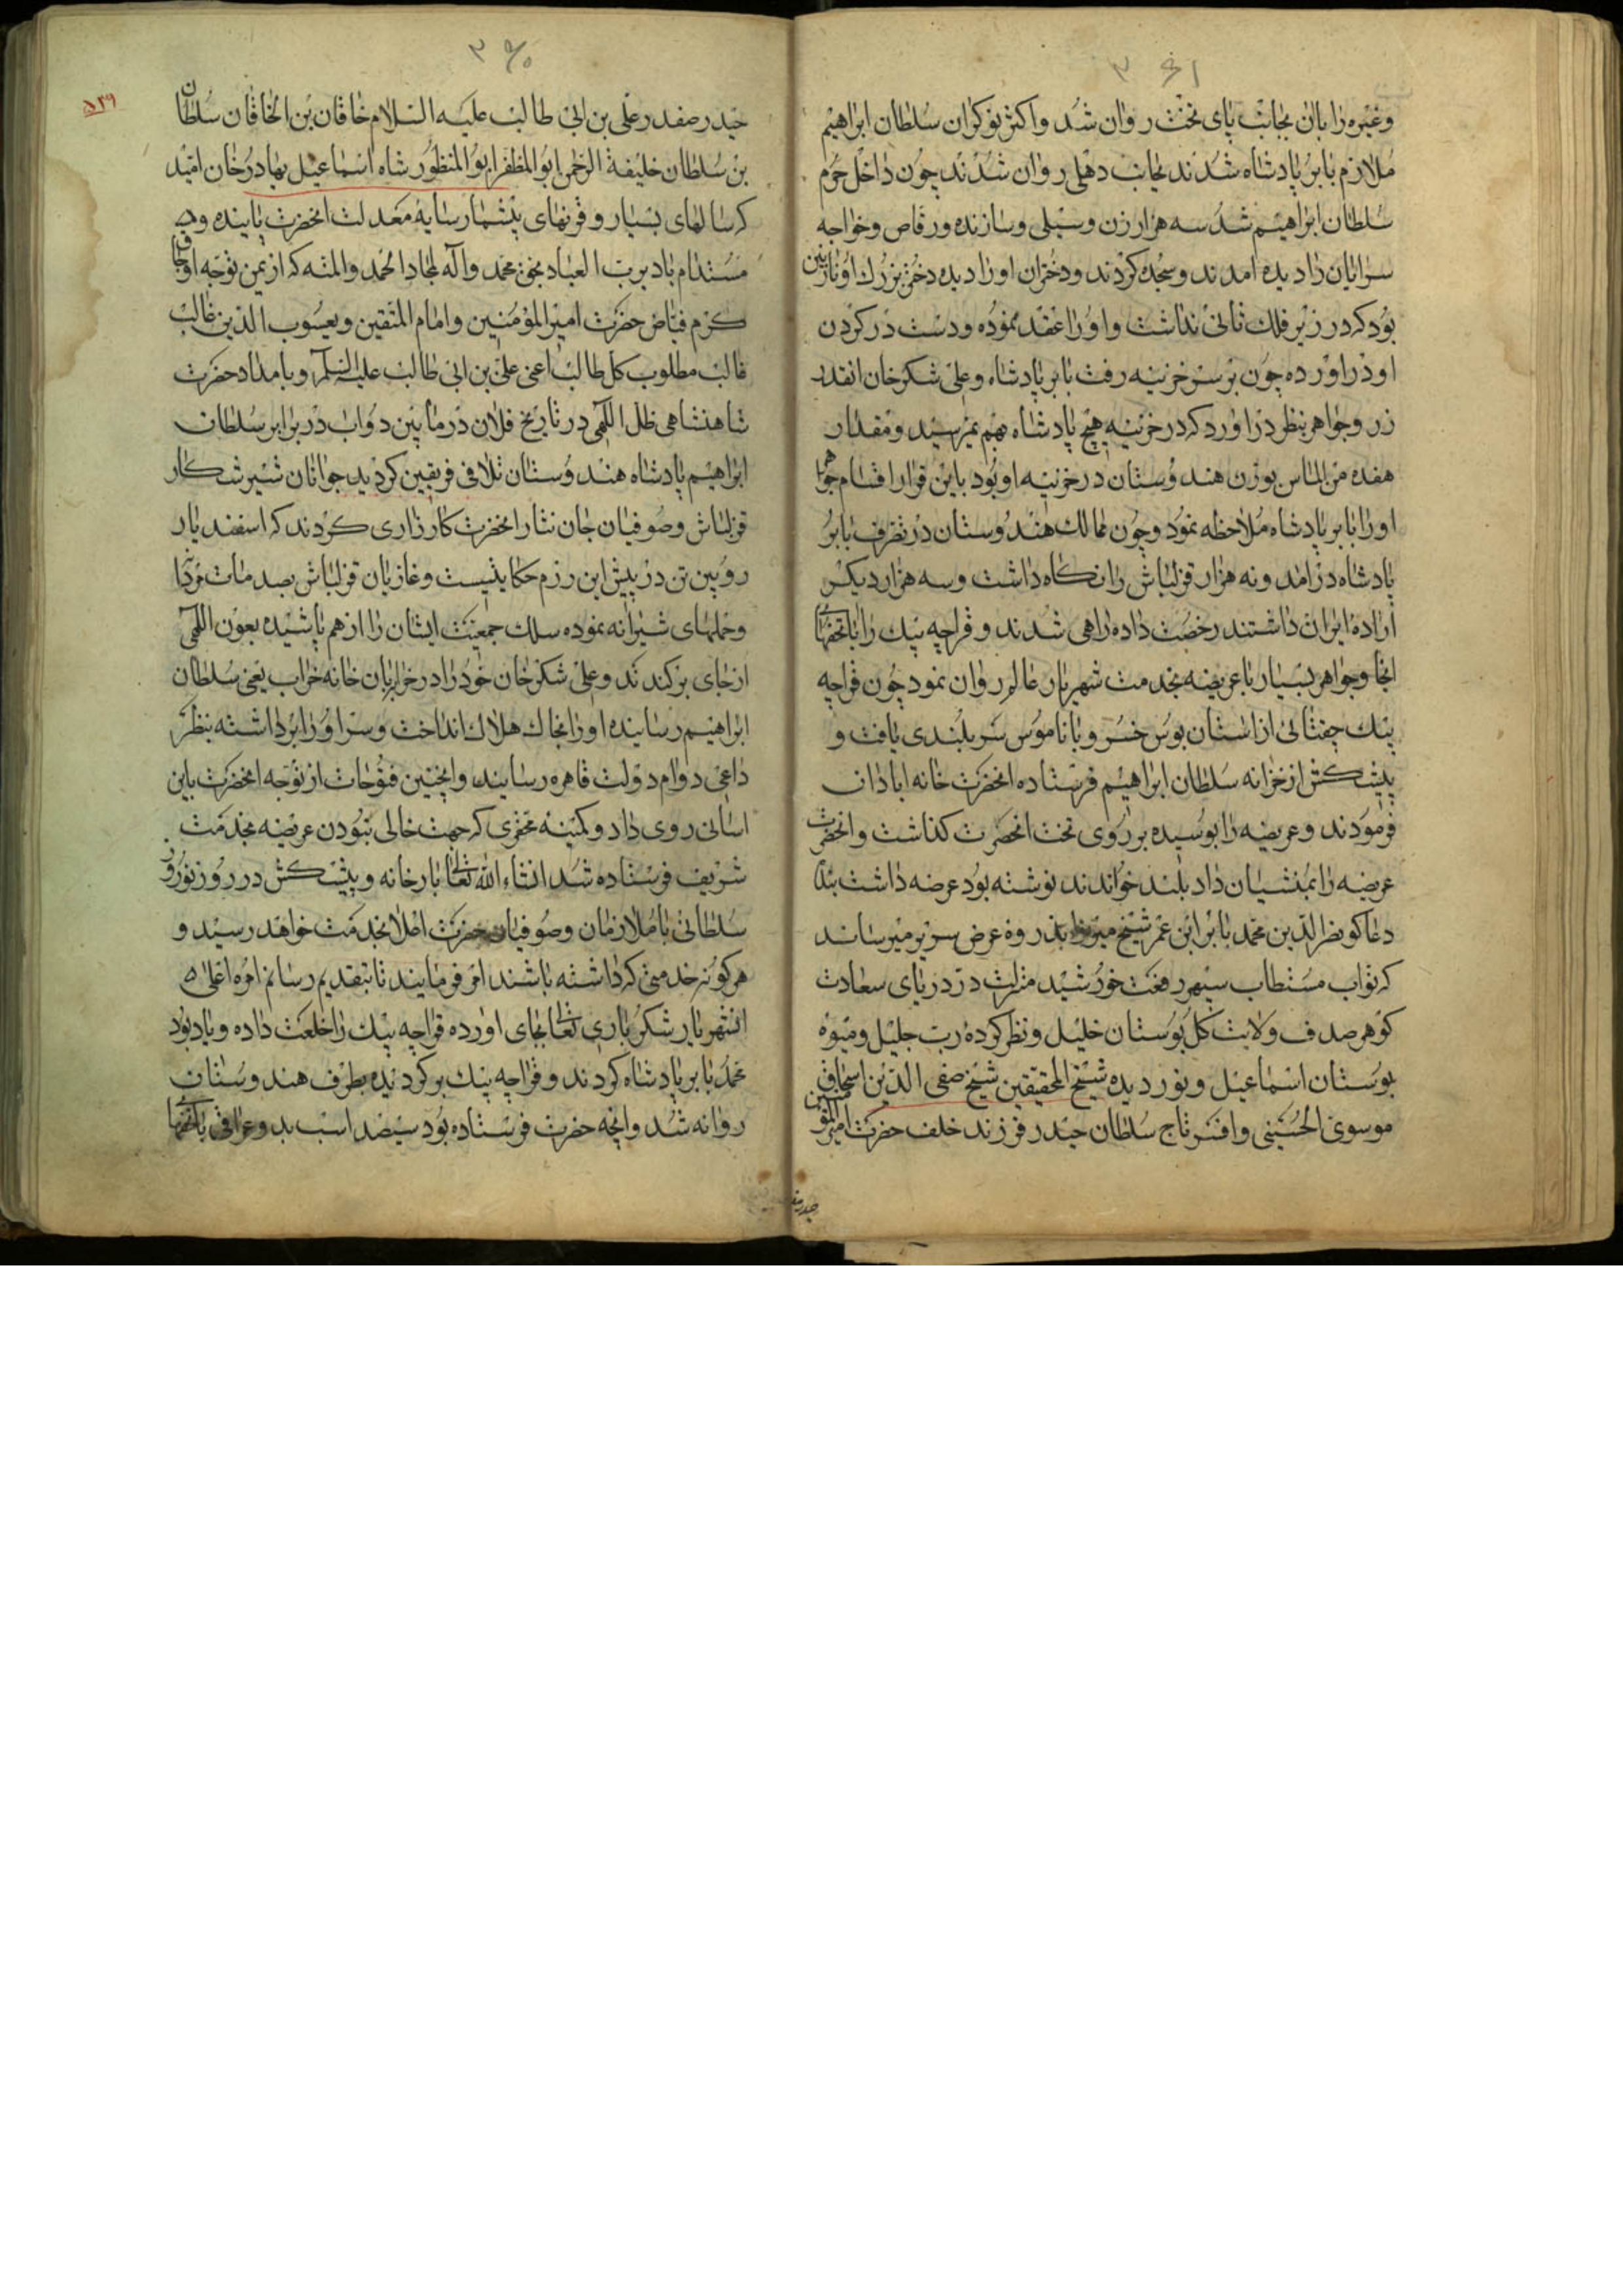 ۳۶۱
وغیره را با آن بجانب پای تخت روان شد و اکثر نوکران سلطان ابراهیم
ملازم بابر پادشاه شدند بجانب دهلی روان شدند چون داخل حرم
سلطان ابراهیم شد سه هزار زن و سیلی و سازنده و رقاص و خواجه
سرایان را دیده آمدند و سجده کردند و دختران او را دیده دختر بزرك او نازنین
بود که در زیر فلك ثانی نداشت و او را عقد نموده و دست در کردن
او در آورده چون بر سر خزینه رفت بابر پادشاه و علی شکر خان آنقدر
زر و جواهر بنظر در آورد که در خزینه هیچ پادشاه بهم نمیرسید و مقدار
هفده من الماس بوزن هندوستان در خزینه او بود باین قرار اقسام جواهر
او را بابر پادشاه ملاحظه نمود و چون ممالك هندوستان در تصرف بابر
پادشاه در آمد و نه هزار قزلباش را نکاه داشت و سه هزار دیکر
اراده ایران داشتند رخصت داده راهی شدند و قراچه بیك را با تحفهای
آنجا و جواهر بسیار با عریضه بخدمت شهریار عالم روان نمود چون قراچه
بیك چغتائی از آستان بوس خسرو با ناموس سر بلندی یافت و
پیشکش از خزانه سلطان ابراهیم فرستاده آنحضرت خانه آبادان
فرمودند و عریضه را بوسیده بر روی تخت آنحضرت کذاشت و آنحضرت
عریضه را بمنشیان داد بلند خواندند نوشته بود عرضه داشت بنده
دعا کو نصر الدین محمد بابر ابن عمر شیخ میرزا بذروه عرض سریر میرساند
که نواب مستطاب سپهر رفعت خورشید منزلت در دریای سعادت
کوهر صدف ولایت کل بوستان خلیل و نظر کرده رب جلیل و میوه
بوستان اسماعیل و نور دیده شیخ المحققین شیخ صفی الدین اسحاق
موسوی الحسینی و افسر تاج سلطان حیدر فرزند خلف حضرت امیر المؤمنین
حیدر صفدر
۳۶۰
۵۳۹
حیدر صفدر علی بن ابی طالب علیه السلام خاقان بن الخاقان سلطان
بن سلطان خلیفة الرحمن ابو المظفر ابو المنظور شاه اسماعیل بهادر خان امید
که سالهای بسیار و قرنهای بیشمار سایه معدلت آنحضرت پاینده و
مستدام باد برب العباد بحق محمد و آله الامجاد الحمد والمنه که از یمن توجه اوجاق
کرم فیاض حضرت امیر المؤمنین و امام المتقین و یعسوب الدین غالب
غالب مطلوب کل طالب اعنی علی بن ابی طالب علیه السلم و بامداد حضرت
شاهنشاهی ظل اللهی در تاریخ فلان در مابین دواب در برابر سلطان
ابراهیم پادشاه هندوستان تلافی فریقین کردید جوانان شیر شکار
قزلباش و صوفیان جان نثار آنحضرت کارزاری کردند که اسفندیار
رویین تن در پیش این رزم حکایتیست و غازیان قزلباش بصدمات مردانه
و حملهای شیرانه نموده سلك جمعیت ایشان را از هم پاشیده بعون اللهی
از جای برکندند و علی شکر خان خود را در خرابان خانه خراب یعنی سلطان
ابراهیم رسانیده او را بخاك هلاك انداخت و سر او را برداشته بنظر
داعی دوام دولت قاهره رسانید و اینچنین فتوحات از توجه آنحضرت باین
آسانی روی داد و کمینه محقری که جهت خالی نبودن عریضه بخدمت
شریف فرستاده شد انشاء الله تعالی بارخانه و پیشکش در روز نوروز
سلطانی با ملازمان و صوفیان حضرت اعلا بخدمت خواهد رسید و
هر کونه خدمتی که داشته باشند امر فرمایند تا بتقدیم رسانم امره اعلی
آنشهریار شکر باری تعالی بجای آورده قراچه بیك را خلعت داده و یاد بود
محمد بابر پادشاه کردند و قراچه بیك بر کردیده بطرف هندوستان
روانه شد و آنچه حضرت فرستاده بود سیصد اسب بدو عراقی با تحفهای